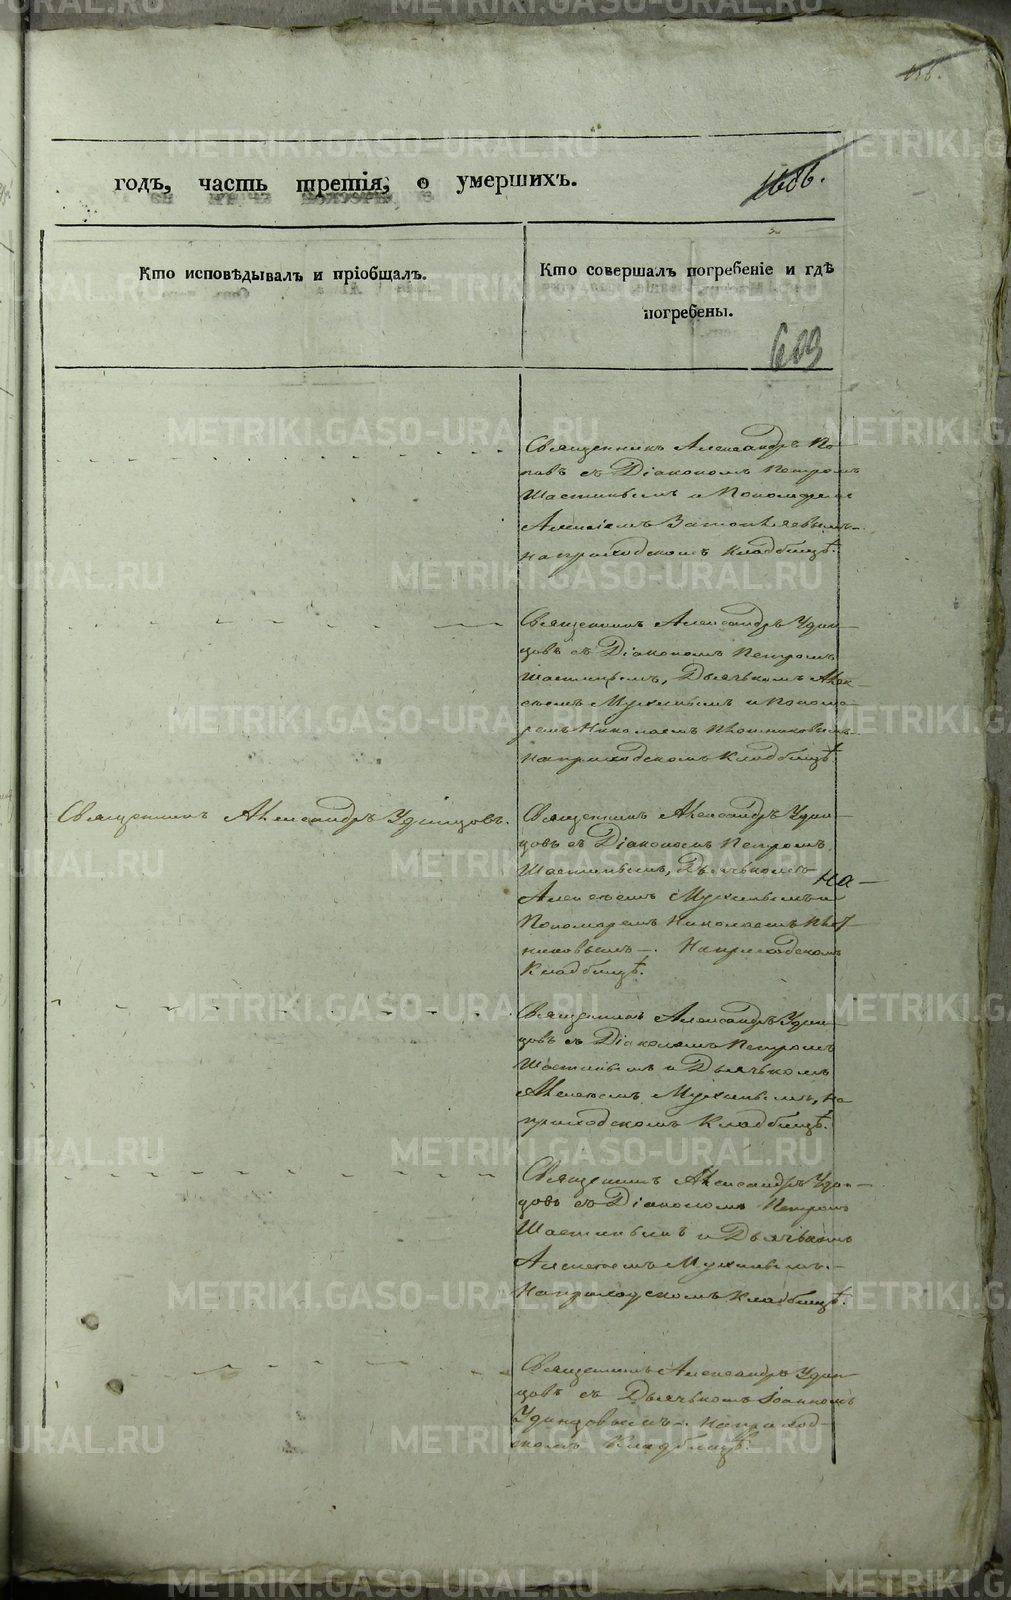 METRIKI.GASO-URAL.RU
годъ, часть третія, о умершихъ.
Кто исповѣдывалъ и пріобщалъ.
Кто совершалъ погребеніе и гдѣ
погребены.
609
Священникъ Александръ По-
повъ съ Діакономъ Петромъ
Шастинымъ и Пономаремъ
Алексіемъ
на приходскомъ кладбищѣ.
Священникъ Александръ Удин-
цовъ съ Діакономъ Петромъ
Шастинымъ, Дьячькомъ Алек-
сѣемъ Мухинымъ и Понома-
ремъ Николаемъ Плотниковымъ
на приходскомъ Кладбищѣ.
Священникъ Александръ Удинцовъ.
Священникъ Александръ Удин-
цовъ съ Діакономъ Петромъ
Шастинымъ, Дьячькомъ
на
Алексѣемъ Мухинымъ и
Пономаремъ Николаемъ Плот-
никовымъ -. На приходскомъ
Кладбищѣ.
Священникъ Александръ Удин-
цовъ съ Діакономъ Петромъ
Шастинымъ и Дьячькомъ
Алексѣемъ Мухинымъ, на
приходскомъ Кладбищѣ.
Священникъ Александръ Удин-
цовъ съ Діакономъ Петромъ
Шастинымъ и Дьячькомъ
Алексѣемъ Мухинымъ.-
На приходскомъ Кладбищѣ.
Священникъ Александръ Удин-
цовъ съ Дьячькомъ Іоанномъ
Удинцовымъ-. На приход-
скомъ Кладбищѣ.